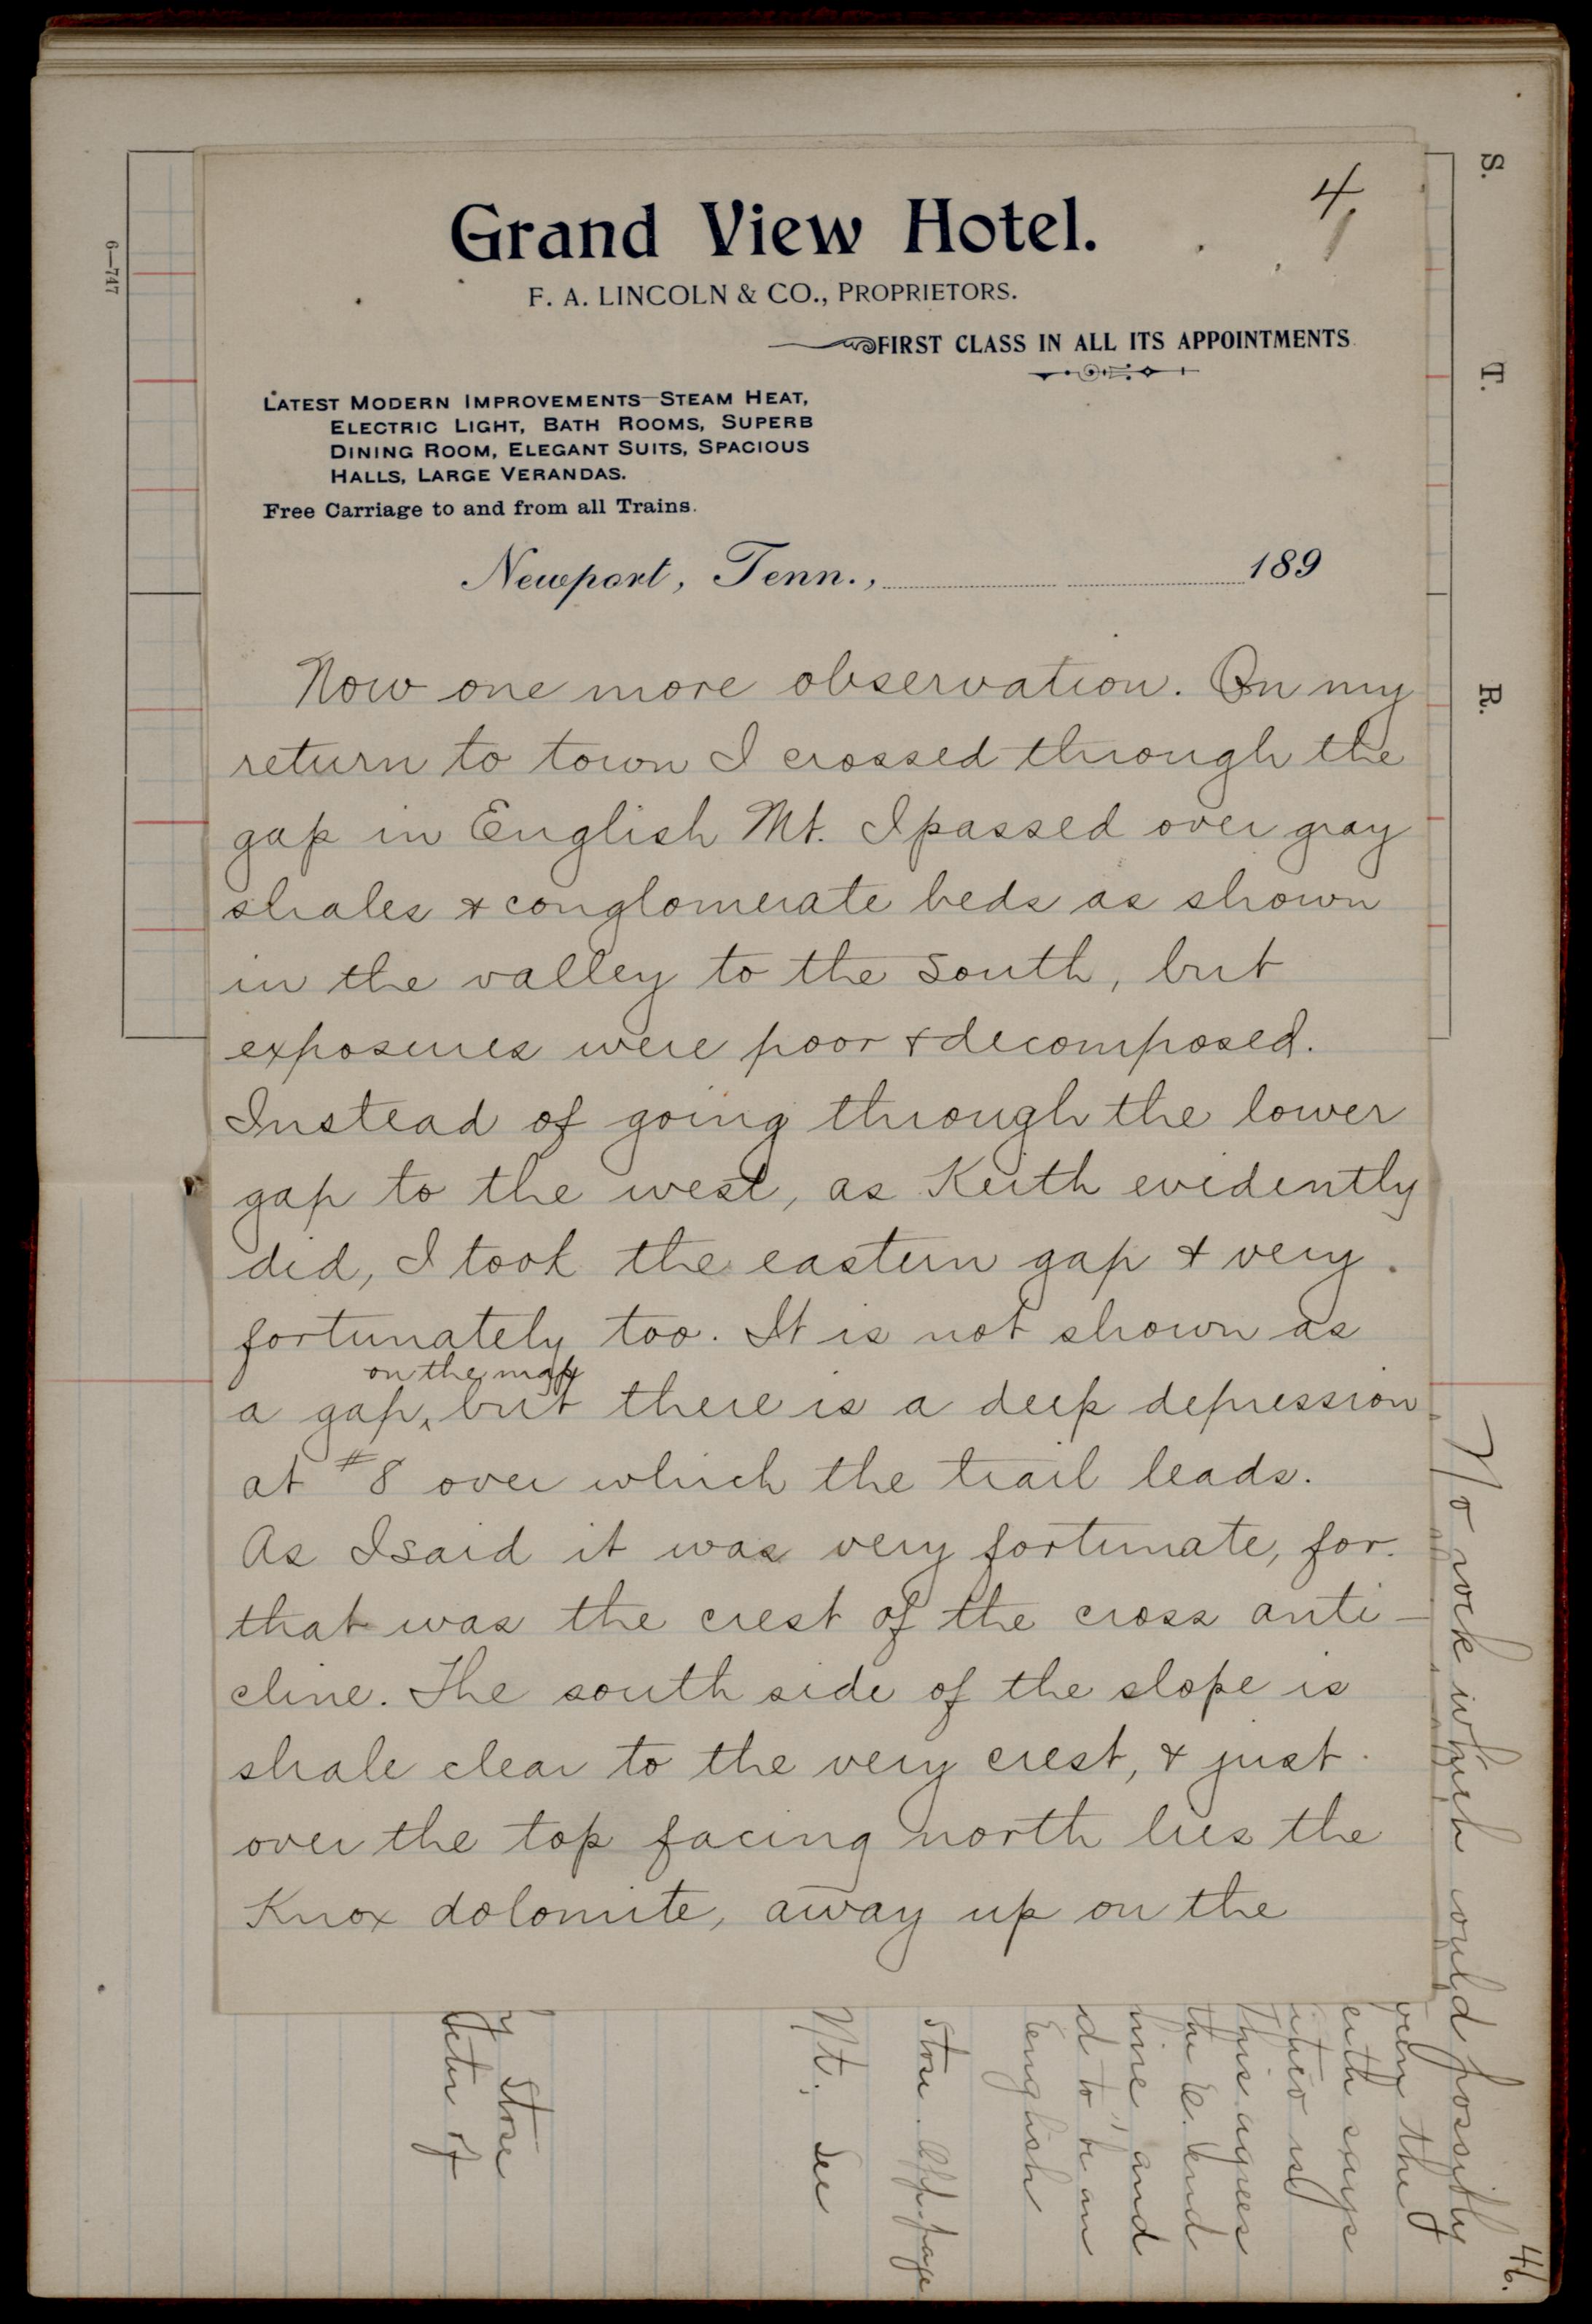 4
Grand View Hotel.
F. A. LINCOLN & CO., PROPRIETORS.
FIRST CLASS IN ALL ITS APPOINTMENTS
LATEST MODERN IMPROVEMENTS—STEAM HEAT,
ELECTRIC LIGHT, BATH ROOMS, SUPERB
DINING ROOM, ELEGANT SUITS, SPACIOUS
HALLS, LARGE VERANDAS.
Free Carriage to and from all Trains.
Newport, Tenn., 189
Now one more observation. On my
return to town I crossed through the
gap in English Mt. I passed over gray
shales & conglomerate beds as shown
in the valley to the south, but
exposures were poor & decomposed.
Instead of going through the lower
gap to the west, as Keith evidently
did, I took the eastern gap & very
fortunately too. It is not shown as
on the map
a gap, but there is a deep depression
at #8 over which the trail leads.
As I said it was very fortunate, for
that was the crest of the cross anti-
cline. The south side of the slope is
shale clear to the very crest, & just
over the top facing north lies the
Knox dolomite, away up on the
6—747
S. T. R.
46.
No rock which could possibly
the
says
is
this agrees
the E. end
and
d to be an
English
Stose. App. page
Mt. See
Stose
of